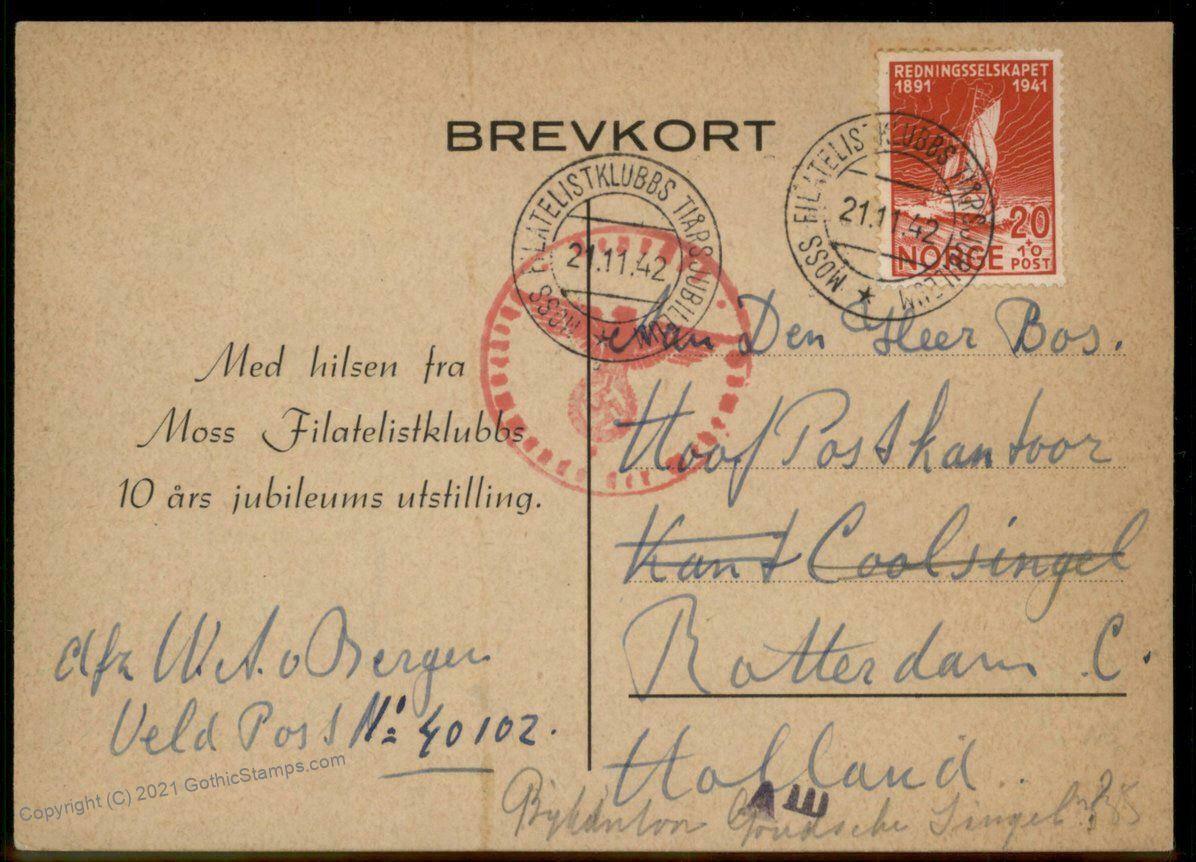 BREVKORT
REDNINGSSELSKAPET
1891 1941
20
+10
NORGE POST
MOSS FILATELISTKLUBBS TIÅRSJUBILEUM
21.11.42
MOSS FILATELISTKLUBBS TIÅRSJUBILEUM
21.11.42
Med hilsen fra
Moss Filatelistklubbs
10 års jubileums utstilling.
Aan Den Heer Bos.
Hoof Postkantoor
Kant Coolsingel
Rotterdam C.
Holland.
Afz W.A. v Bergen
Veld Post No 40102.
Bijkantoor Goudsche Singel
AE
Copyright (C) 2021 GothicStamps.com